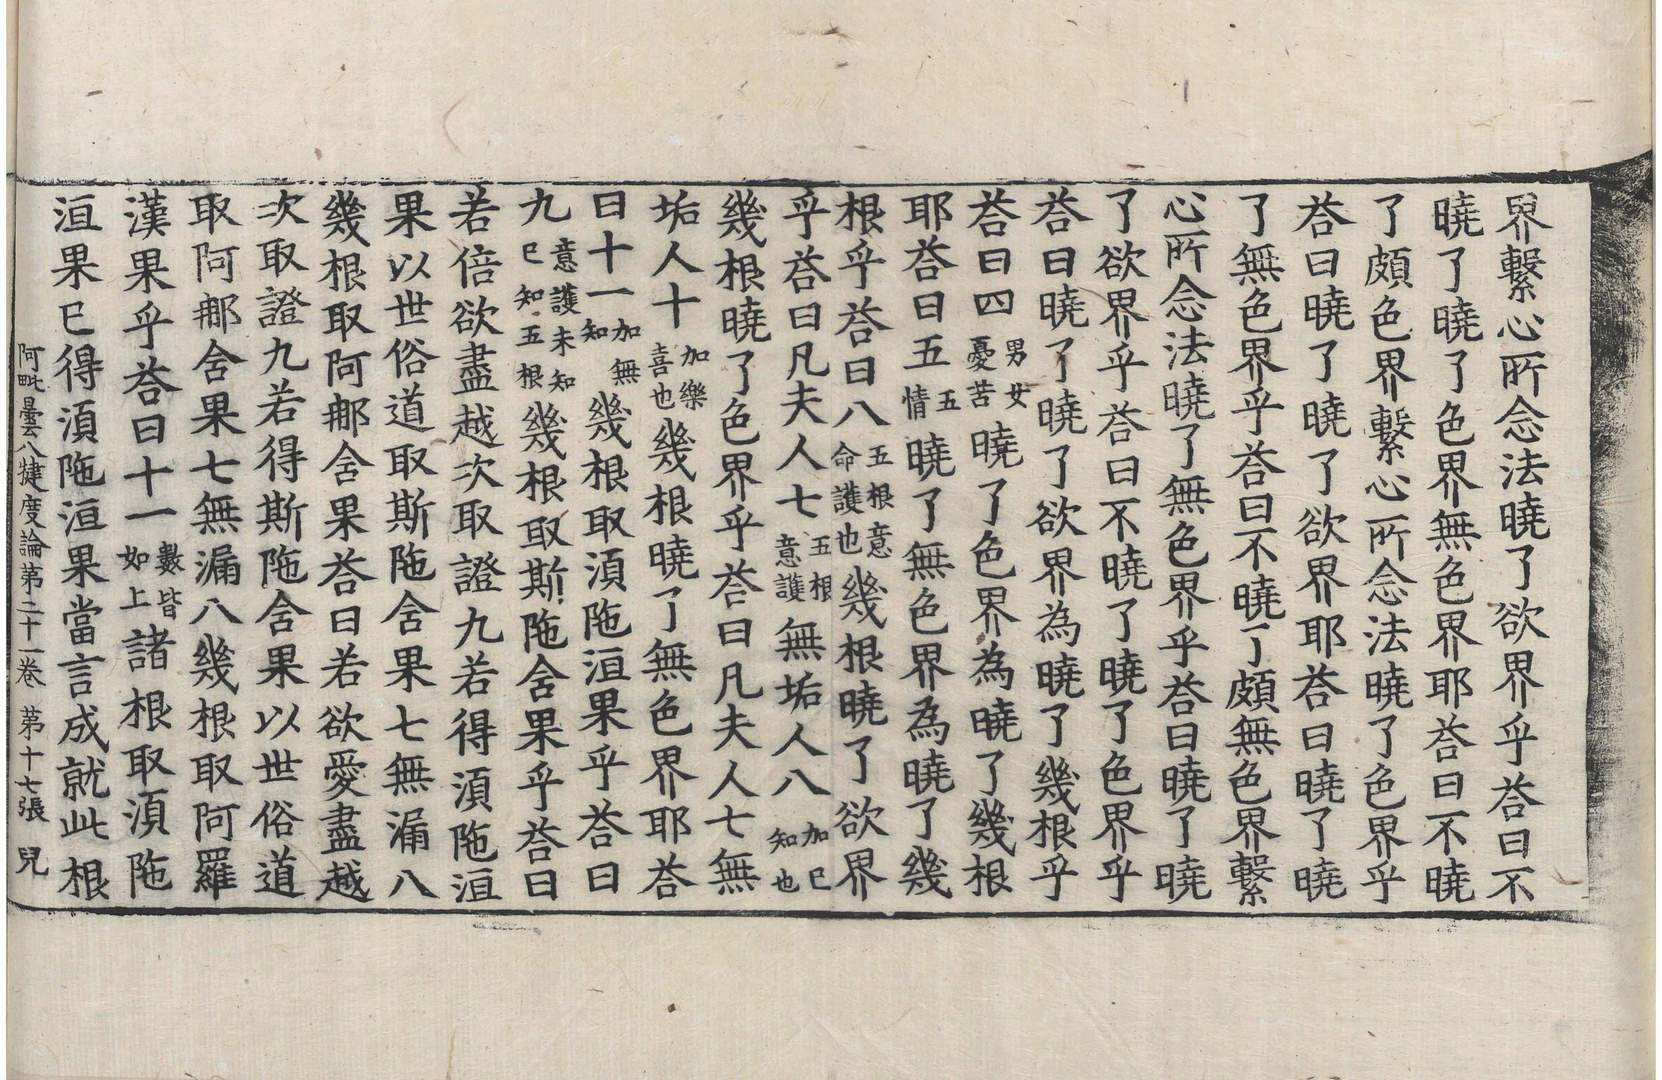 界繫心所念法曉了欲界乎荅曰不
曉了曉了色界無色界耶荅曰不曉
了頗色界繫心所念法曉了色界乎
荅曰曉了曉了欲界耶荅曰曉了曉
了無色界乎荅曰不曉了頗無色界繫
心所念法曉了無色界乎荅曰曉了曉
了欲界乎荅曰不曉了曉了色界乎
荅曰曉了曉了欲界為曉了幾根乎
荅曰四男女憂苦曉了色界為曉了幾根
耶荅曰五五情曉了無色界為曉了幾
根乎荅曰八五根意命護也幾根曉了欲界
乎荅曰凡夫人七五根意護無垢人八加已知也
幾根曉了色界乎荅曰凡夫人七無
垢人十加樂喜也幾根曉了無色界耶荅
曰十一加無知幾根取湏陁洹果乎荅曰
九意護未知已知五根幾根取斯陁含果乎荅曰
若倍欲盡越次取證九若得湏陁洹
果以世俗道取斯陁含果七無漏八
幾根取阿那含果荅曰若欲愛盡越
次取證九若得斯陁含果以世俗道
取阿那含果七無漏八幾根取阿羅
漢果乎荅曰十一數皆如上諸根取湏陁
洹果已得湏陁洹果當言成就此根
阿毗曇八犍度論第二十一卷 第十七張 兒